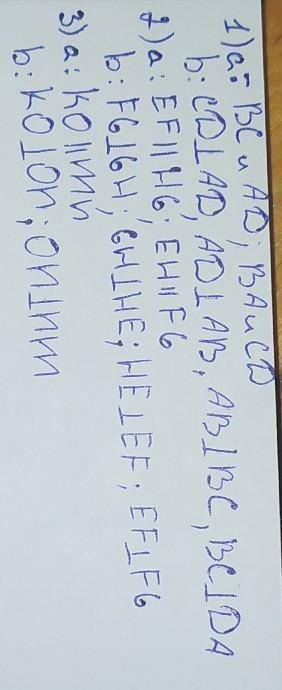 1) a: BC и AD; BA и CD
b: CD⊥AD, AD⊥AB, AB⊥BC, BC⊥DA
2) a: EF||HG; EH||FG
b: FG⊥GH; GH⊥HE; HE⊥EF; EF⊥FG
3) a: KO||MN
b: KO⊥ON; ON⊥MN